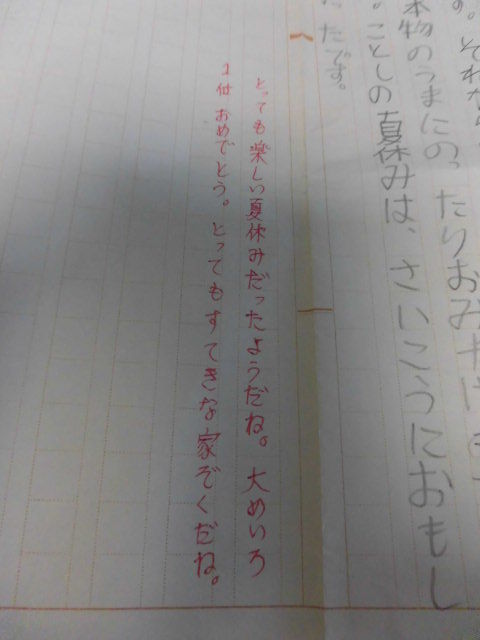 す。それから
本物のうまにのったりおみやげ
。ことしの夏休みは、さいこうにおもし
ったです。
とっても楽しい夏休みだったようだね。大めいろ
1位おめでとう。とってもすてきな家ぞくだね。